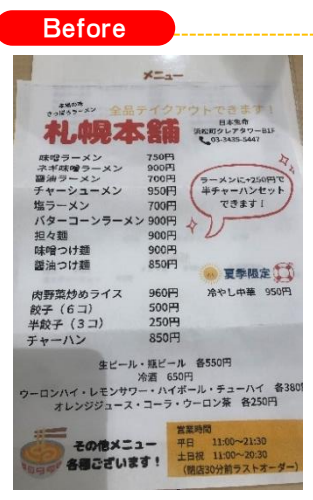 Before
メニュー
本場の味
さっぽろラーメン
全品テイクアウトできます！
札幌本舗
日本生命
浜松町クレアタワーB1F
03-3435-5447
味噌ラーメン 750円
ネギ味噌ラーメン 900円
醤油ラーメン 700円
チャーシューメン 950円
塩ラーメン 700円
バターコーンラーメン 900円
担々麺 900円
味噌つけ麺 900円
醤油つけ麺 850円
ラーメンに+250円で
半チャーハンセット
できます！
夏季限定
冷やし中華 950円
肉野菜炒めライス 960円
餃子（6コ） 500円
半餃子（3コ） 250円
チャーハン 850円
生ビール・瓶ビール 各550円
冷酒 650円
ウーロンハイ・レモンサワー・ハイボール・チューハイ 各380
オレンジジュース・コーラ・ウーロン茶 各250円
その他メニュー
各種ございます！
営業時間
平日 11:00~21:30
土日祝 11:00~20:30
（閉店30分前ラストオーダー）